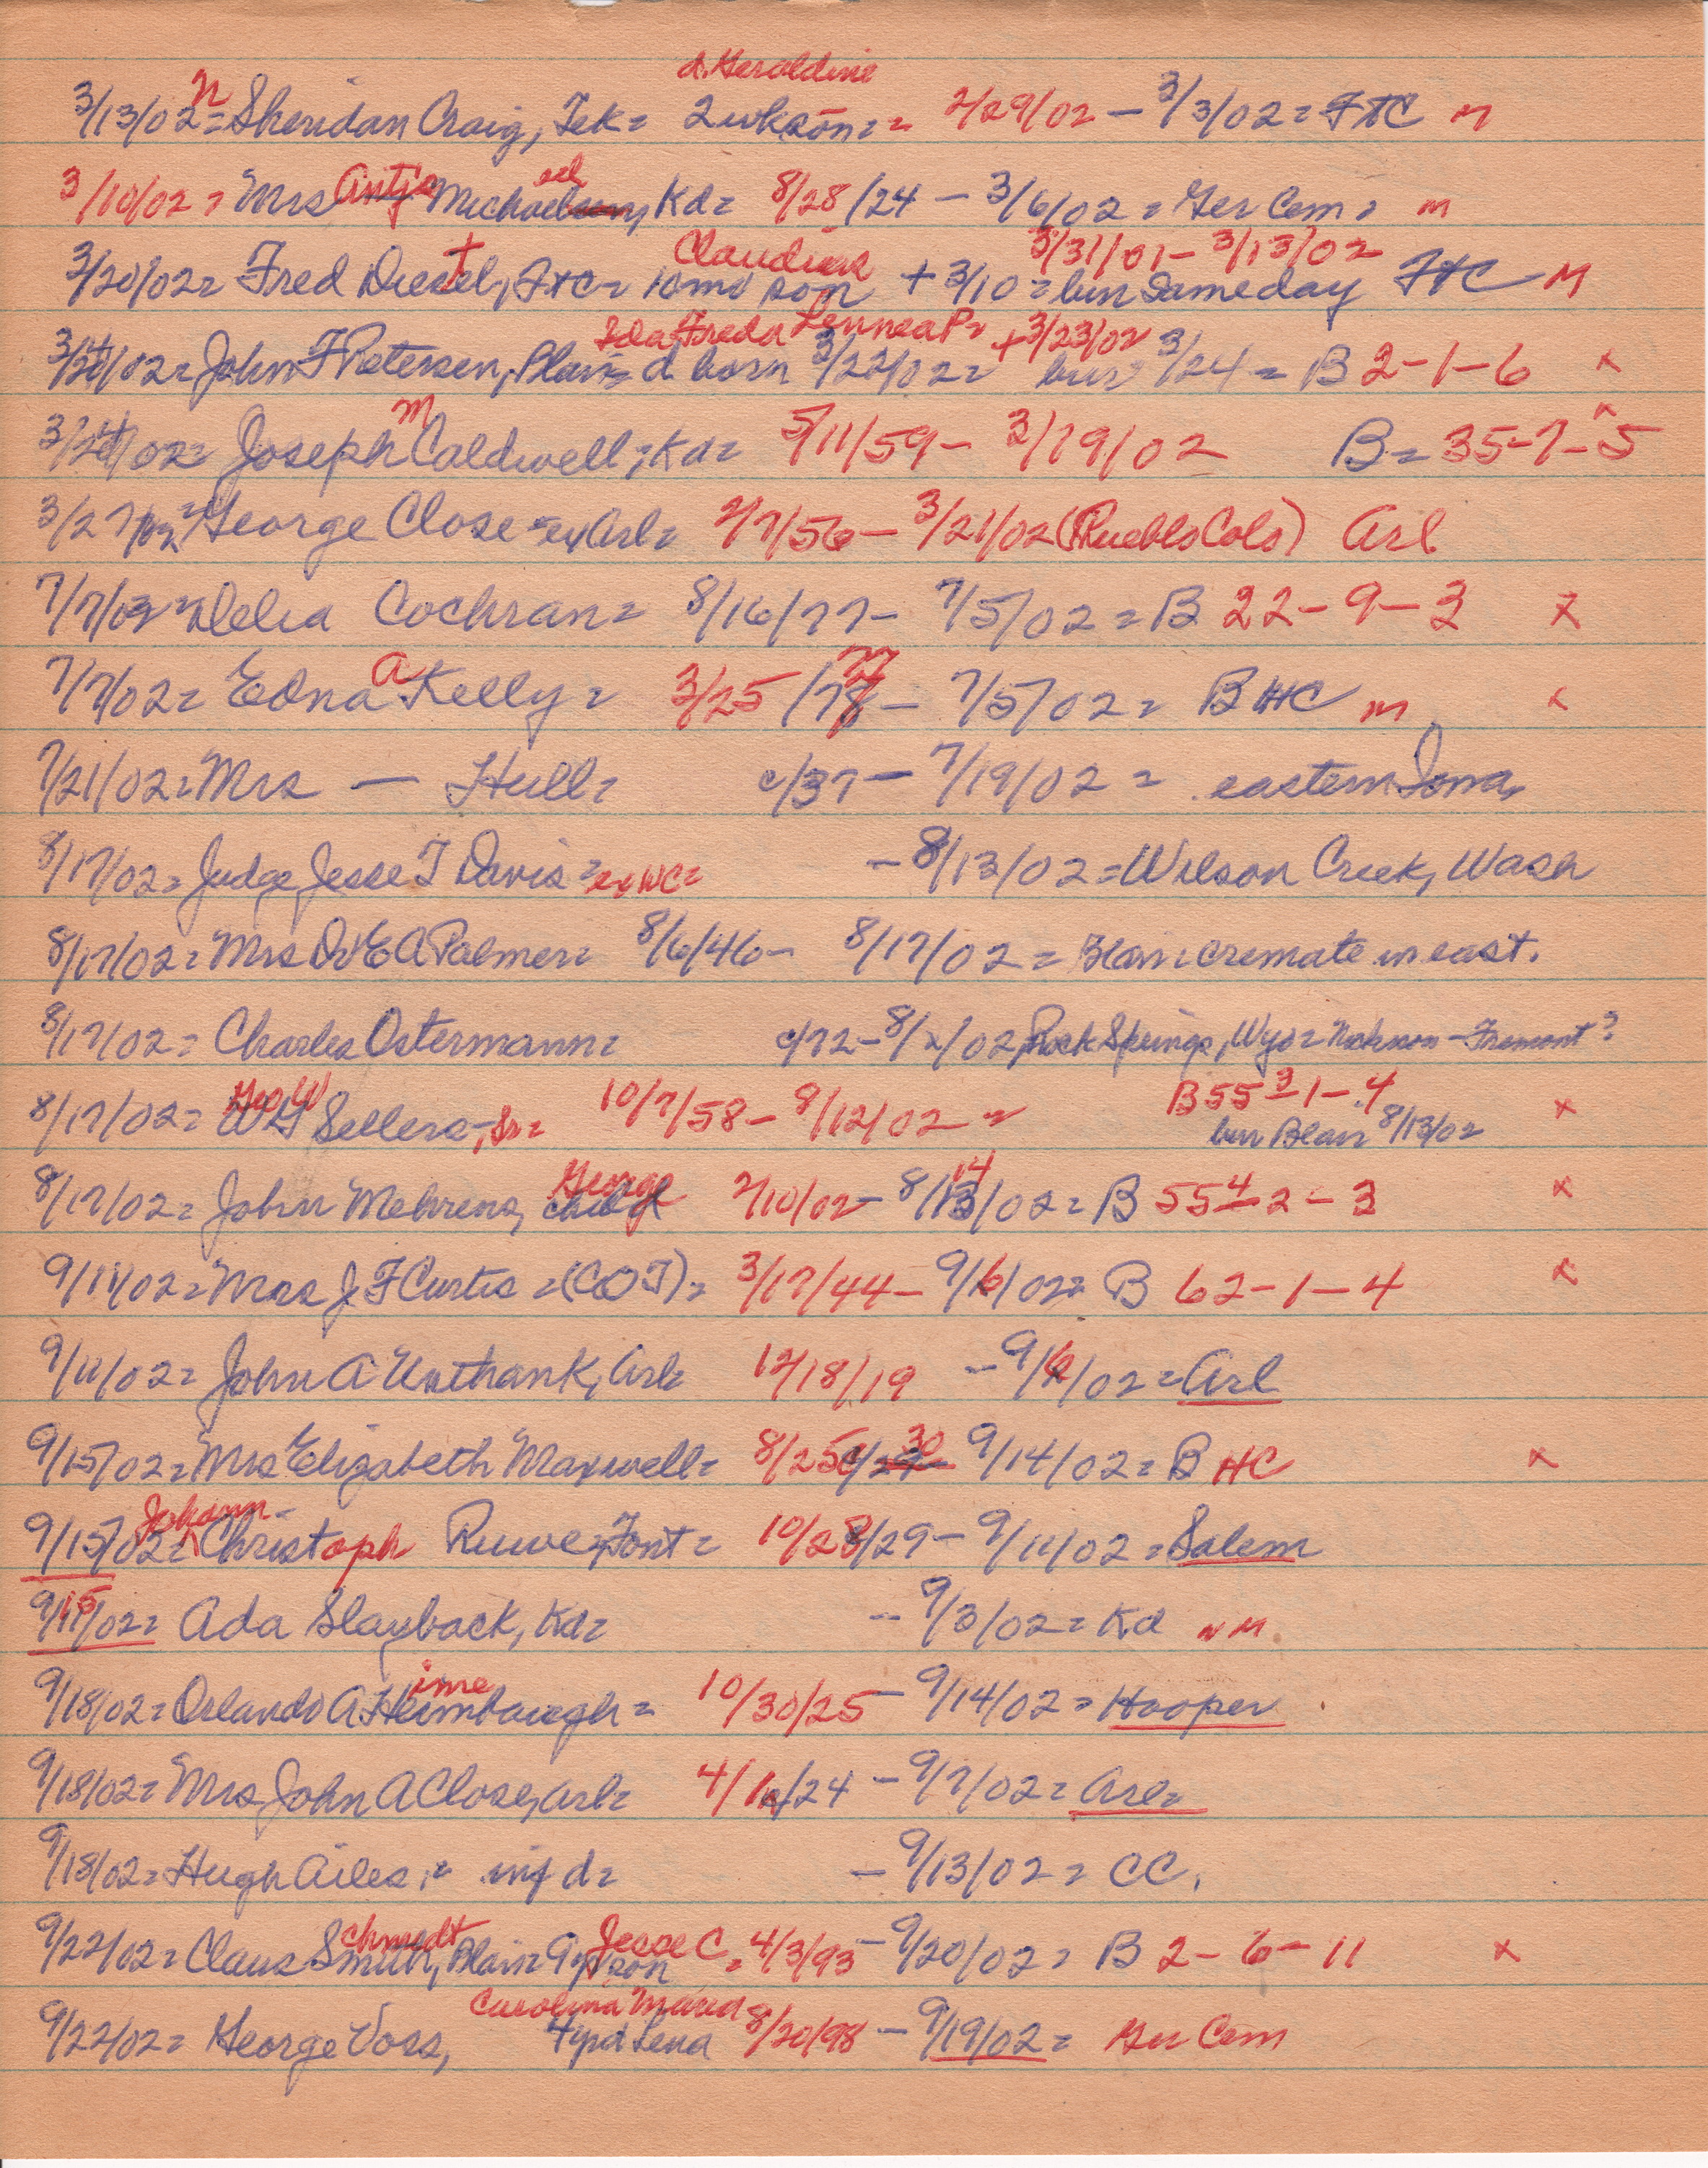 d. Geraldine
3/13/02 = n Sheridan Craig, Tek = 2 wk son = = 2/29/02 - 3/3/02 = FTC m
3/10/02 = Mrs Antje Michaelsen, Kd = 8/28/24 - 3/6/02 = Ger Cem = m
Claudius 3/31/01 - 3/13/02
3/20/02 = Fred Diestel, FTC = 10 mo son + 3/10 = bur same day FTC M
Ida Freda Lennea P = + 3/23/02
3/24/02 = John F Petersen, Blair = d born 3/22/02 = bur 3/24 = B 2-1-6 x
3/24/02 = Joseph M Caldwell, Kd = 5/11/59 - 3/19/02 B = 35-7-5 x
3/27/02 = George Close = ex Arl = 2/7/56 - 3/21/02 (Pueblo Colo) Arl
7/7/02 = Delia Cochran = 8/16/77 - 7/5/02 = B 22-9-3 x
7/7/02 = Edna A Kelly = 3/25/78 77 - 7/5/02 = B HC m x
7/21/02 = Mrs — Hull = c/37 - 7/19/02 = eastern Iowa,
8/17/02 = Judge Jesse T Davis = ex WC = - 8/13/02 = Wilson Creek, Wash
8/17/02 = Mrs Dr E A Palmer = 8/6/46 - 8/17/02 = Blair cremate in east.
8/17/02 = Charles Ostermann = c/72 - 8/2/02, Rock Springs, Wyo = Nickerson - Fremont?
Geo W B 55 3 - 1-4
8/17/02 = WH Sellers, Sr = 10/7/58 - 8/12/02 = bur Blair 8/13/02 x
8/17/02 = John Mehrens, child George 2/10/02 - 8/13/02 14 = B 55 4 - 2-3 x
9/11/02 = Mrs J F Curtis = (COT) = 3/17/44 - 9/6/02 = B 62-1-4 x
9/11/02 = John A Unthank, Arl = 12/18/19 - 9/6/02 = Arl
9/15/02 = Mrs Elizabeth Maxwell = 8/25 c/29 30 - 9/14/02 = B HC x
Johann
9/15/02 = Christoph Ruwe, Font = 10/28/29 - 9/11/02 = Salem
9/15/02 = Ada Slayback, Kd = - 9/3/02 = Kd n M
9/18/02 = Orlando A Heimbaugh ime = 10/30/25 - 9/14/02 = Hooper
9/18/02 = Mrs John A Close, Arl = 4/16/24 - 9/7/02 = Arl =
9/18/02 = Hugh Ailes, = inf d = - 9/13/02 = CC.
9/22/02 = Claus Smith chmidt, Blair = 9 yr son Jesse C = 4/3/93 - 9/20/02 = B 2-6-11 x
Carolina Maria
9/22/02 = George Voss, 4 yr d Lena 8/20/98 - 9/19/02 = Ger Cem